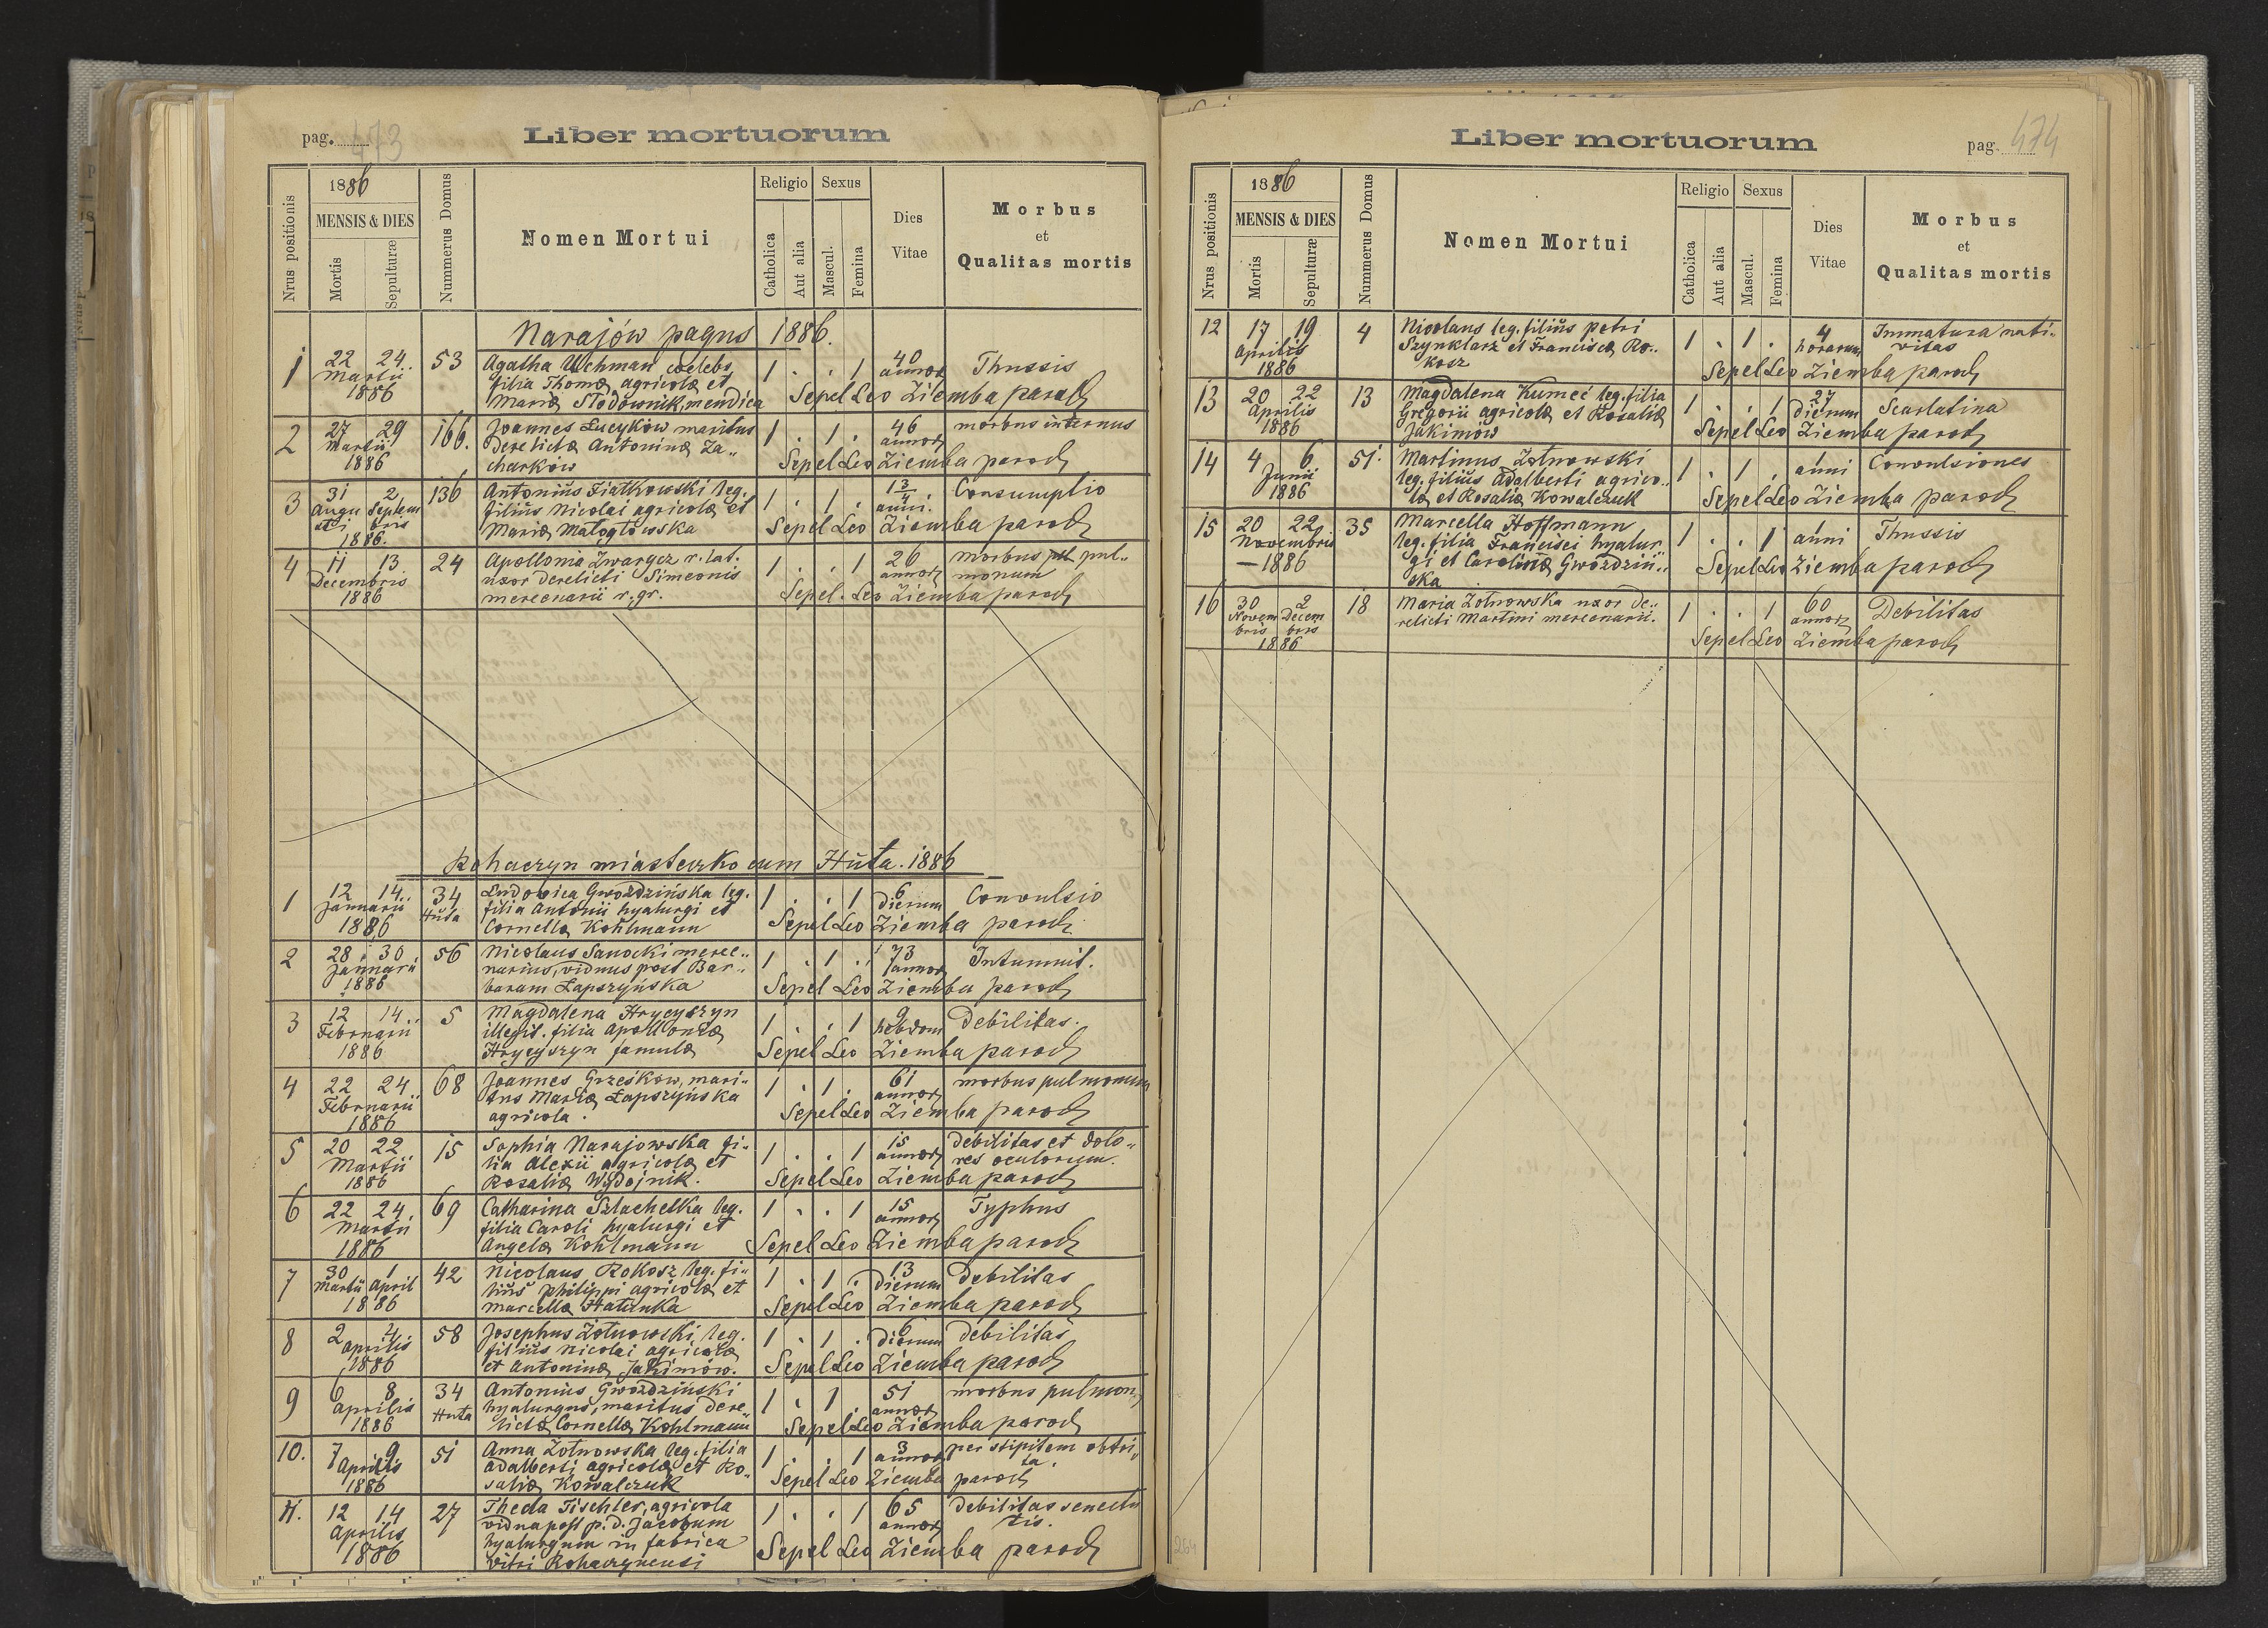 pag. 473
Liber mortuorum
Nrus positionis
1886
MENSIS & DIES
Mortis
Sepulturæ
Nummerus Domus
Nomen Mortui
Religio
Catholica
Aut alia
Sexus
Mascul.
Femina
Dies
Vitae
Morbus
et
Qualitas mortis
Narajów pagus 1886.
1 22 24 53 Agatha Uchman coelebs 1 . . 1 40 Thussis
Martii filia Thomæ agricolæ et annor
1886 Mariæ Słodownik, mendica Sepel Leo Ziemba paroch
2 27 29 166. Joannes Lucyków maritus 1 . 1 . 46 morbus internus
Martii derelictæ Antoninæ Za„ annor
1886 charków Sepel Leo Ziemba paroch
3 31 2 136 Antonius Fiatkowski leg. 1 . 1 . 1 3/4 Consumptio
Augu Septem filius Nicolai agricolæ et anni.
sti bris Mariæ Małogłowska Sepel Leo Ziemba paroch
1886.
4 11 13 24 Apollonia Zwargcz r. lat. 1 . . 1 26 morbus pul„
Decembris uxor derelicti Simeonis annor monum
1886 mercenarii r. gr. Sepel. Leo Ziemba paroch
Rohaczyn miasteczko cum Huta. 1886
1 12 14 34 Ludovica Gwoździńska leg. 1 . . 1 6 Convulsio
Januarii Huta filia Antonii hyalurgi et dierum
1886 Cornellæ Kohlmann Sepel Leo Ziemba paroch
2 28 30 56 Nicolaus Sanocki merce„ 1 . 1 . 73 Intumuit.
Januarii narius, viduus post Bar„ annor
1886 baram Łapszyńska Sepel Leo Ziemba paroch
3 12 14 5 Magdalena Hrycyszyn 1 . . 1 9 debilitas.
Februarii illegit. filia Apolloniæ hebdom
1886 Hrycyszyn famulæ Sepel Leo Ziemba paroch
4 22 24 68 Joannes Grześków, mari„ 1 . 1 . 61 morbus pulmonum
Februarii tus Mariæ Łapszyńska annor
1886 agricola. Sepel Leo Ziemba paroch
5 20 22 15 Sophia Narajowska fi„ 1 . . 1 15 debilitas et dolo„
Martii lia Alexii agricolæ et annor res oculorum.
1886 Rosaliæ Wydojnik. Sepel Leo Ziemba paroch
6 22 24 69 Catharina Szlachetka leg. 1 . . 1 15 Typhus
Martii filia Caroli hyalurgi et annor
1886 Angelæ Kohlmann Sepel Leo Ziemba paroch
7 30 1 42 Nicolaus Rokosz leg. fi„ 1 . 1 . 13 debilitas
Martii April lius Philippi agricolæ et dierum
1886 Marcellæ Hałunka Sepel Leo Ziemba paroch
8 2 4 58 Josephus Żołnowski leg. 1 . 1 . 6 debilitas
aprilis filius Nicolai agricolæ dierum
1886 et Antoninæ Jakimów. Sepel Leo Ziemba paroch
9 6 8 34 Antonius Gwoździński 1 . 1 . 51 morbus pulmon
aprilis Huta hyalurgus, maritus dere„ annor
1886 lictæ Cornellæ Kohlmann Sepel Leo Ziemba paroch
10. 7 9 51 Anna Żołnowska leg. filia 1 . . 1 3 per stipitem obtri„
Aprilis Adalberti agricolæ et Ro„ annor ta.
1886 saliæ Kowalczuk Sepel Leo Ziemba paroch
11. 12 14 27 Thecla Tischler, agricola 1 . . 1 65 debilitas senectu
Aprilis vidua post p. d. Jacobum annor tis.
1886 hyalurgum in fabrica
vitri Rohaczynensi Sepel Leo Ziemba paroch
Liber mortuorum
pag. 474
Nrus positionis
1886
MENSIS & DIES
Mortis
Sepulturæ
Nummerus Domus
Nomen Mortui
Religio
Catholica
Aut alia
Sexus
Mascul.
Femina
Dies
Vitae
Morbus
et
Qualitas mortis
12 17 19 4 Nicolaus leg. filius Petri 1 . 1 . 4 Immatura nati„
Aprilis Szynklarz et Franciscæ Ro„ horarum vitas
1886 kosz Sepel Leo Ziemba paroch
13 20 22 13 Magdalena Kumeć leg. filia 1 . . 1 27 Scarlatina
Aprilis Gregorii agricolæ et Rosaliæ dierum
1886 Jakimów Sepel Leo Ziemba paroch
14 4 6 51. Martinus Żołnowski 1 . 1 . 1 Convulsiones
Junii leg. filius Adalberti agrico„ anni
1886 læ et Rosaliæ Kowalczuk Sepel Leo Ziemba paroch
15 20 22 35 Marcella Hoffmann 1 . . 1 1 Thussis
Novembris leg. filia Francisci hyalur„ anni
1886 gi et Carolinæ Gwoździń„
ska Sepel Leo Ziemba paroch
16 30 2 18 Maria Żołnowska uxor de„ 1 . . 1 60 Debilitas
Novem Decem relicti Martini mercenarii. annor
bris bris Sepel Leo Ziemba paroch
1886
264